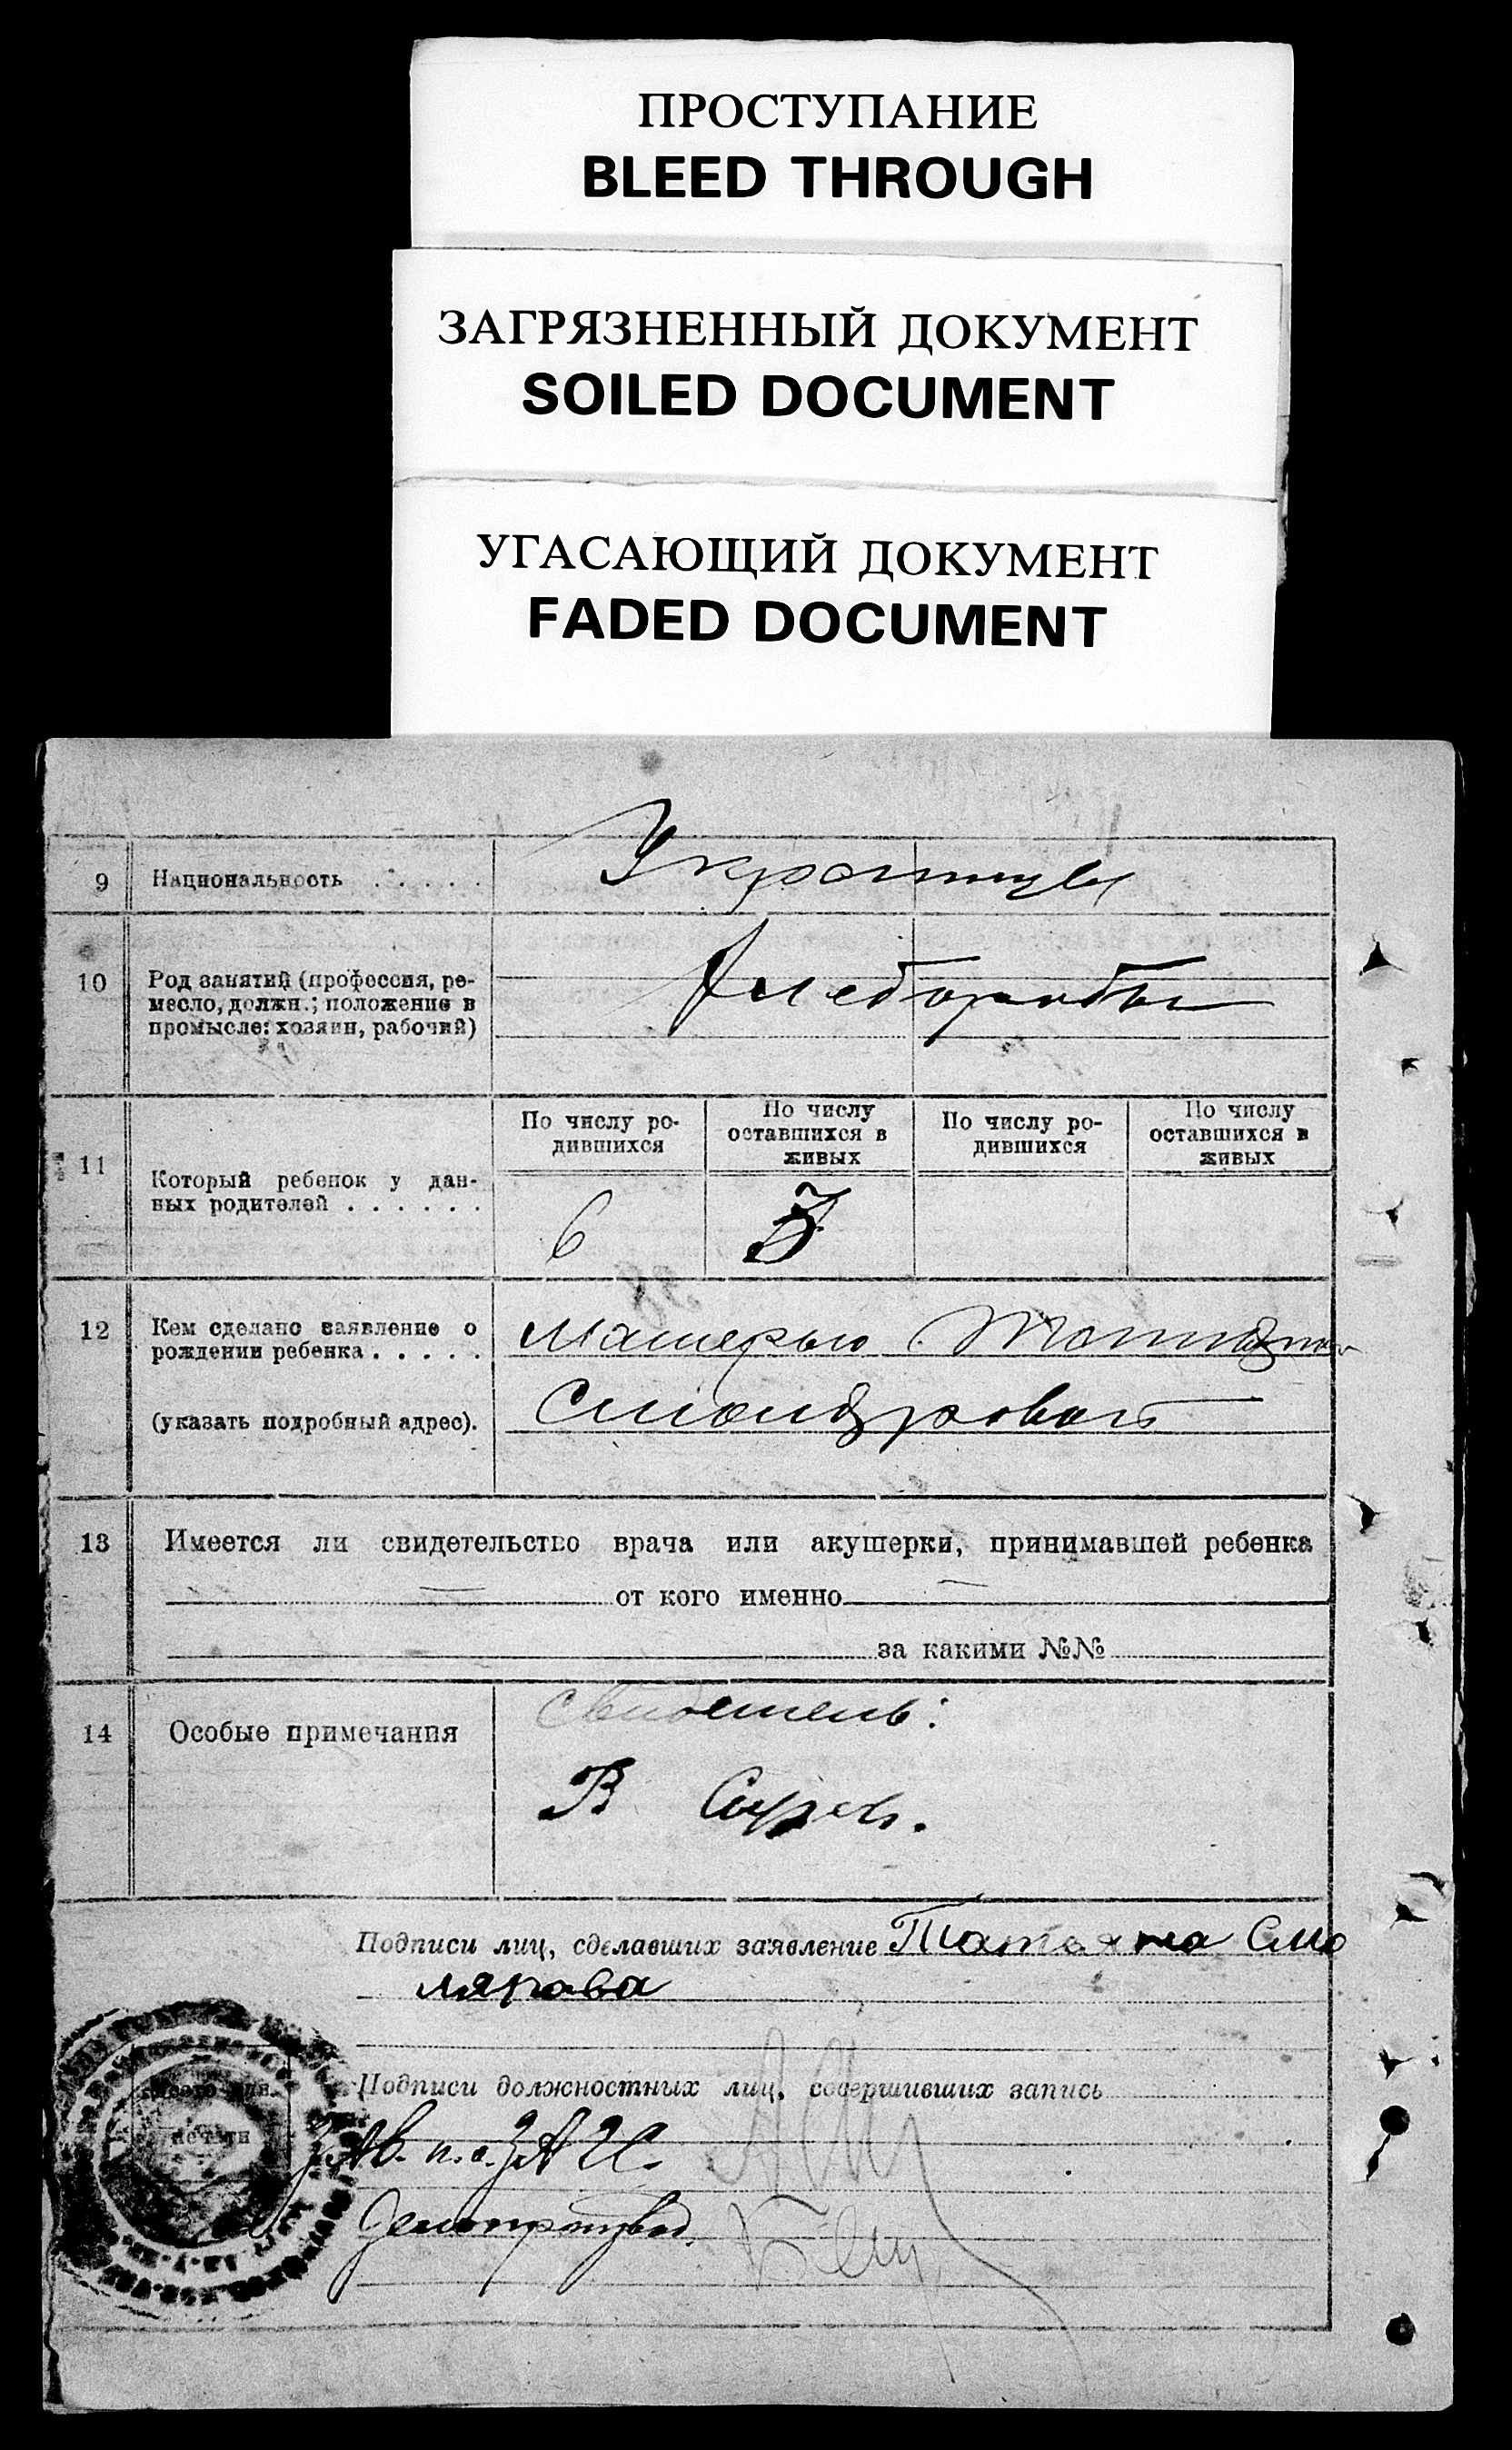 ПРОСТУПАНИЕ
BLEED THROUGH
ЗАГРЯЗНЕННЫЙ ДОКУМЕНТ
SOILED DOCUMENT
УГАСАЮЩИЙ ДОКУМЕНТ
FADED DOCUMENT
9 Национальность . . . . . Украинцы
10 Род занятий (профессия, ре-
месло, должн.; положение в
промысле: хозяин, рабочий)
Хлеборобы
11 Который ребенок у дан-
ных родителей . . . . . .
По числу ро-
дившихся
По числу
оставшихся в
живых
По числу ро-
дившихся
По числу
оставшихся в
живых
6 3
12 Кем сделано заявление о
рождении ребенка . . . . .
(указать подробный адрес).
Матерью
13 Имеется ли свидетельство врача или акушерки, принимавшей ребенка
— от кого именно —
за какими №№
14 Особые примечания
свидетель:
В
Подписи лиц, сделавших заявление Татьяна Смо
лярова
Подписи должностных лиц, совершивших запись
Место для
печати
Зав. п.с. ЗАГС.
Делопроизвод.